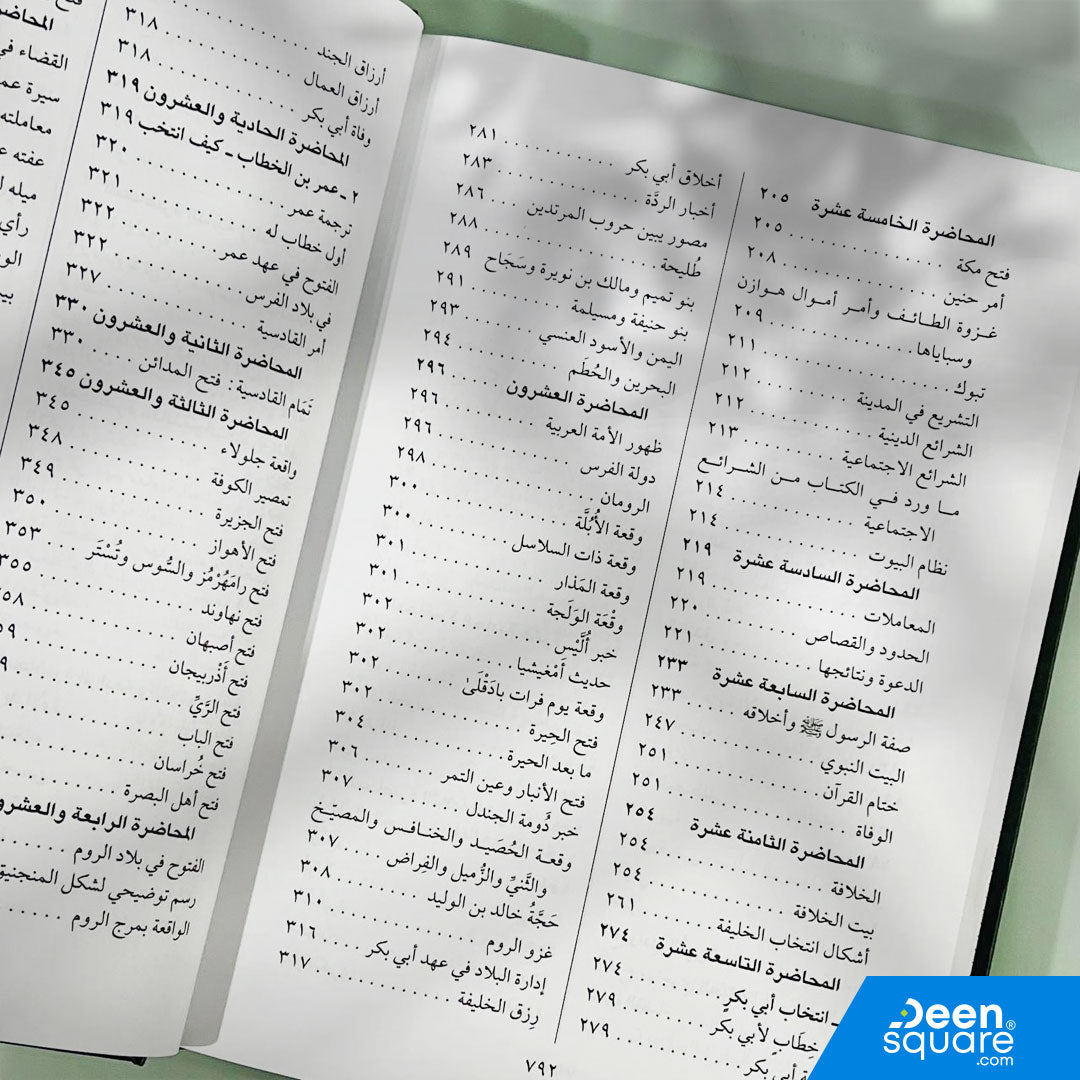 المحاضرة الخامسة عشرة ٢٠٥
فتح مكة ............ ٢٠٥
أمر حنين ............ ٢٠٨
غـزوة الطـائـف وأمـر أمـوال هـوازن
وسباياها ............ ٢٠٩
تبوك ............ ٢١١
التشريع في المدينة ............ ٢١٢
الشرائع الدينية ............ ٢١٢
الشرائع الاجتماعية ............ ٢١٣
مـا ورد فـي الكتـاب مـن الشـرائـع
الاجتماعية ............ ٢١٤
نظام البيوت ............ ٢١٤
المحاضرة السادسة عشرة ٢١٩
المعاملات ............ ٢١٩
الحدود والقصاص ............ ٢٢٠
الدعوة ونتائجها ............ ٢٢١
المحاضرة السابعة عشرة ٢٣٣
صفة الرسول ﷺ وأخلاقه .... ٢٣٣
البيت النبوي ............ ٢٤٧
ختام القرآن ............ ٢٥١
الوفاة ............ ٢٥١
المحاضرة الثامنة عشرة ٢٥٤
الخلافة ............ ٢٥٤
بيت الخلافة ............ ٢٥٤
أشكال انتخاب الخليفة ...... ٢٦١
المحاضرة التاسعة عشرة ٢٧٤
ـ انتخاب أبي بكرٍ ........ ٢٧٤
خطَابٍ لأبي بكر ........ ٢٧٩
أبي بكر ............ ٢٧٩
أخلاق أبي بكر ............ ٢٨١
أخبار الردَّة ............ ٢٨٣
مصور يبين حروب المرتدين ... ٢٨٦
طُليحة ............ ٢٨٨
بنو تميم ومالك بن نويرة وسَجَاح ٢٨٩
بنو حنيفة ومسيلمة ........ ٢٩١
اليمن والأسود العنسي ...... ٢٩٣
البحرين والحُطَم ........ ٢٩٤
المحاضرة العشرون ٢٩٦
ظهور الأمة العربية ........ ٢٩٦
دولة الفرس ............ ٢٩٦
الرومان ............ ٢٩٨
وقعة الأُبُلَّة ............ ٣٠٠
وقعة ذات السلاسل ........ ٣٠٠
وقعة المَذار ............ ٣٠١
وقْعَة الوَلَجة ............ ٣٠١
خبر أُلَّيْس ............ ٣٠٢
حديث أَمْغيشيا ............ ٣٠٢
وقعة يوم فرات بادَقْلَىٰ ...... ٣٠٢
فتح الحِيرة ............ ٣٠٢
ما بعد الحيرة ............ ٣٠٤
فتح الأنبار وعين التمر ...... ٣٠٦
خبر دُومة الجندل ........ ٣٠٧
وقعـة الحُصَيـد والخنـافـس والمصيَّـخ
والثَّنيِّ والزُّميل والفِراض .... ٣٠٧
حَجَّةُ خالد بن الوليد ...... ٣٠٨
غزو الروم ............ ٣١٠
إدارة البلاد في عهد أبي بكر ... ٣١٦
رِزق الخليفة ............ ٣١٧
٧٩٢
أرزاق الجند ............
أرزاق العمال ............ ٣١٨
وفاة أبي بكر ............ ٣١٨
المحاضرة الحادية والعشرون ٣١٩
٢ ـ عمر بن الخطاب ـ كيف انتخب ٣١٩
ترجمة عمر ............ ٣٢٠
أول خطاب له ............ ٣٢١
الفتوح في عهد عمر ........ ٣٢٢
في بلاد الفرس ............ ٣٢٢
أمر القادسية ............ ٣٢٧
المحاضرة الثانية والعشرون ٣٣٠
تَمَام القادسية : فتح المدائن ..... ٣٣٠
المحاضرة الثالثة والعشرون ٣٤٥
واقعة جلولاء ............ ٣٤٥
تمصير الكوفة ............ ٣٤٨
فتح الجزيرة ............ ٣٤٩
فتح الأهواز ............ ٣٥٠
فتح رامَهُرْمُز والسُّوس وتُسْتَر ... ٣٥٣
فتح نهاوند ............ ٣٥٥
فتح أصبهان ............
فتح أَذْرَبيجان ............
فتح الرَّيِّ ............
فتح الباب ............
فتح خُراسان ............
فتح أهل البصرة ............
المحاضرة الرابعة والعشرو
الفتوح في بلاد الروم ......
رسم توضيحي لشكل المنجنيق
الواقعة بمرج الروم ......
المحاضر
القضاء في
سيرة عم
معاملته
عفته
ميله
رأي
Deen
square®
.com